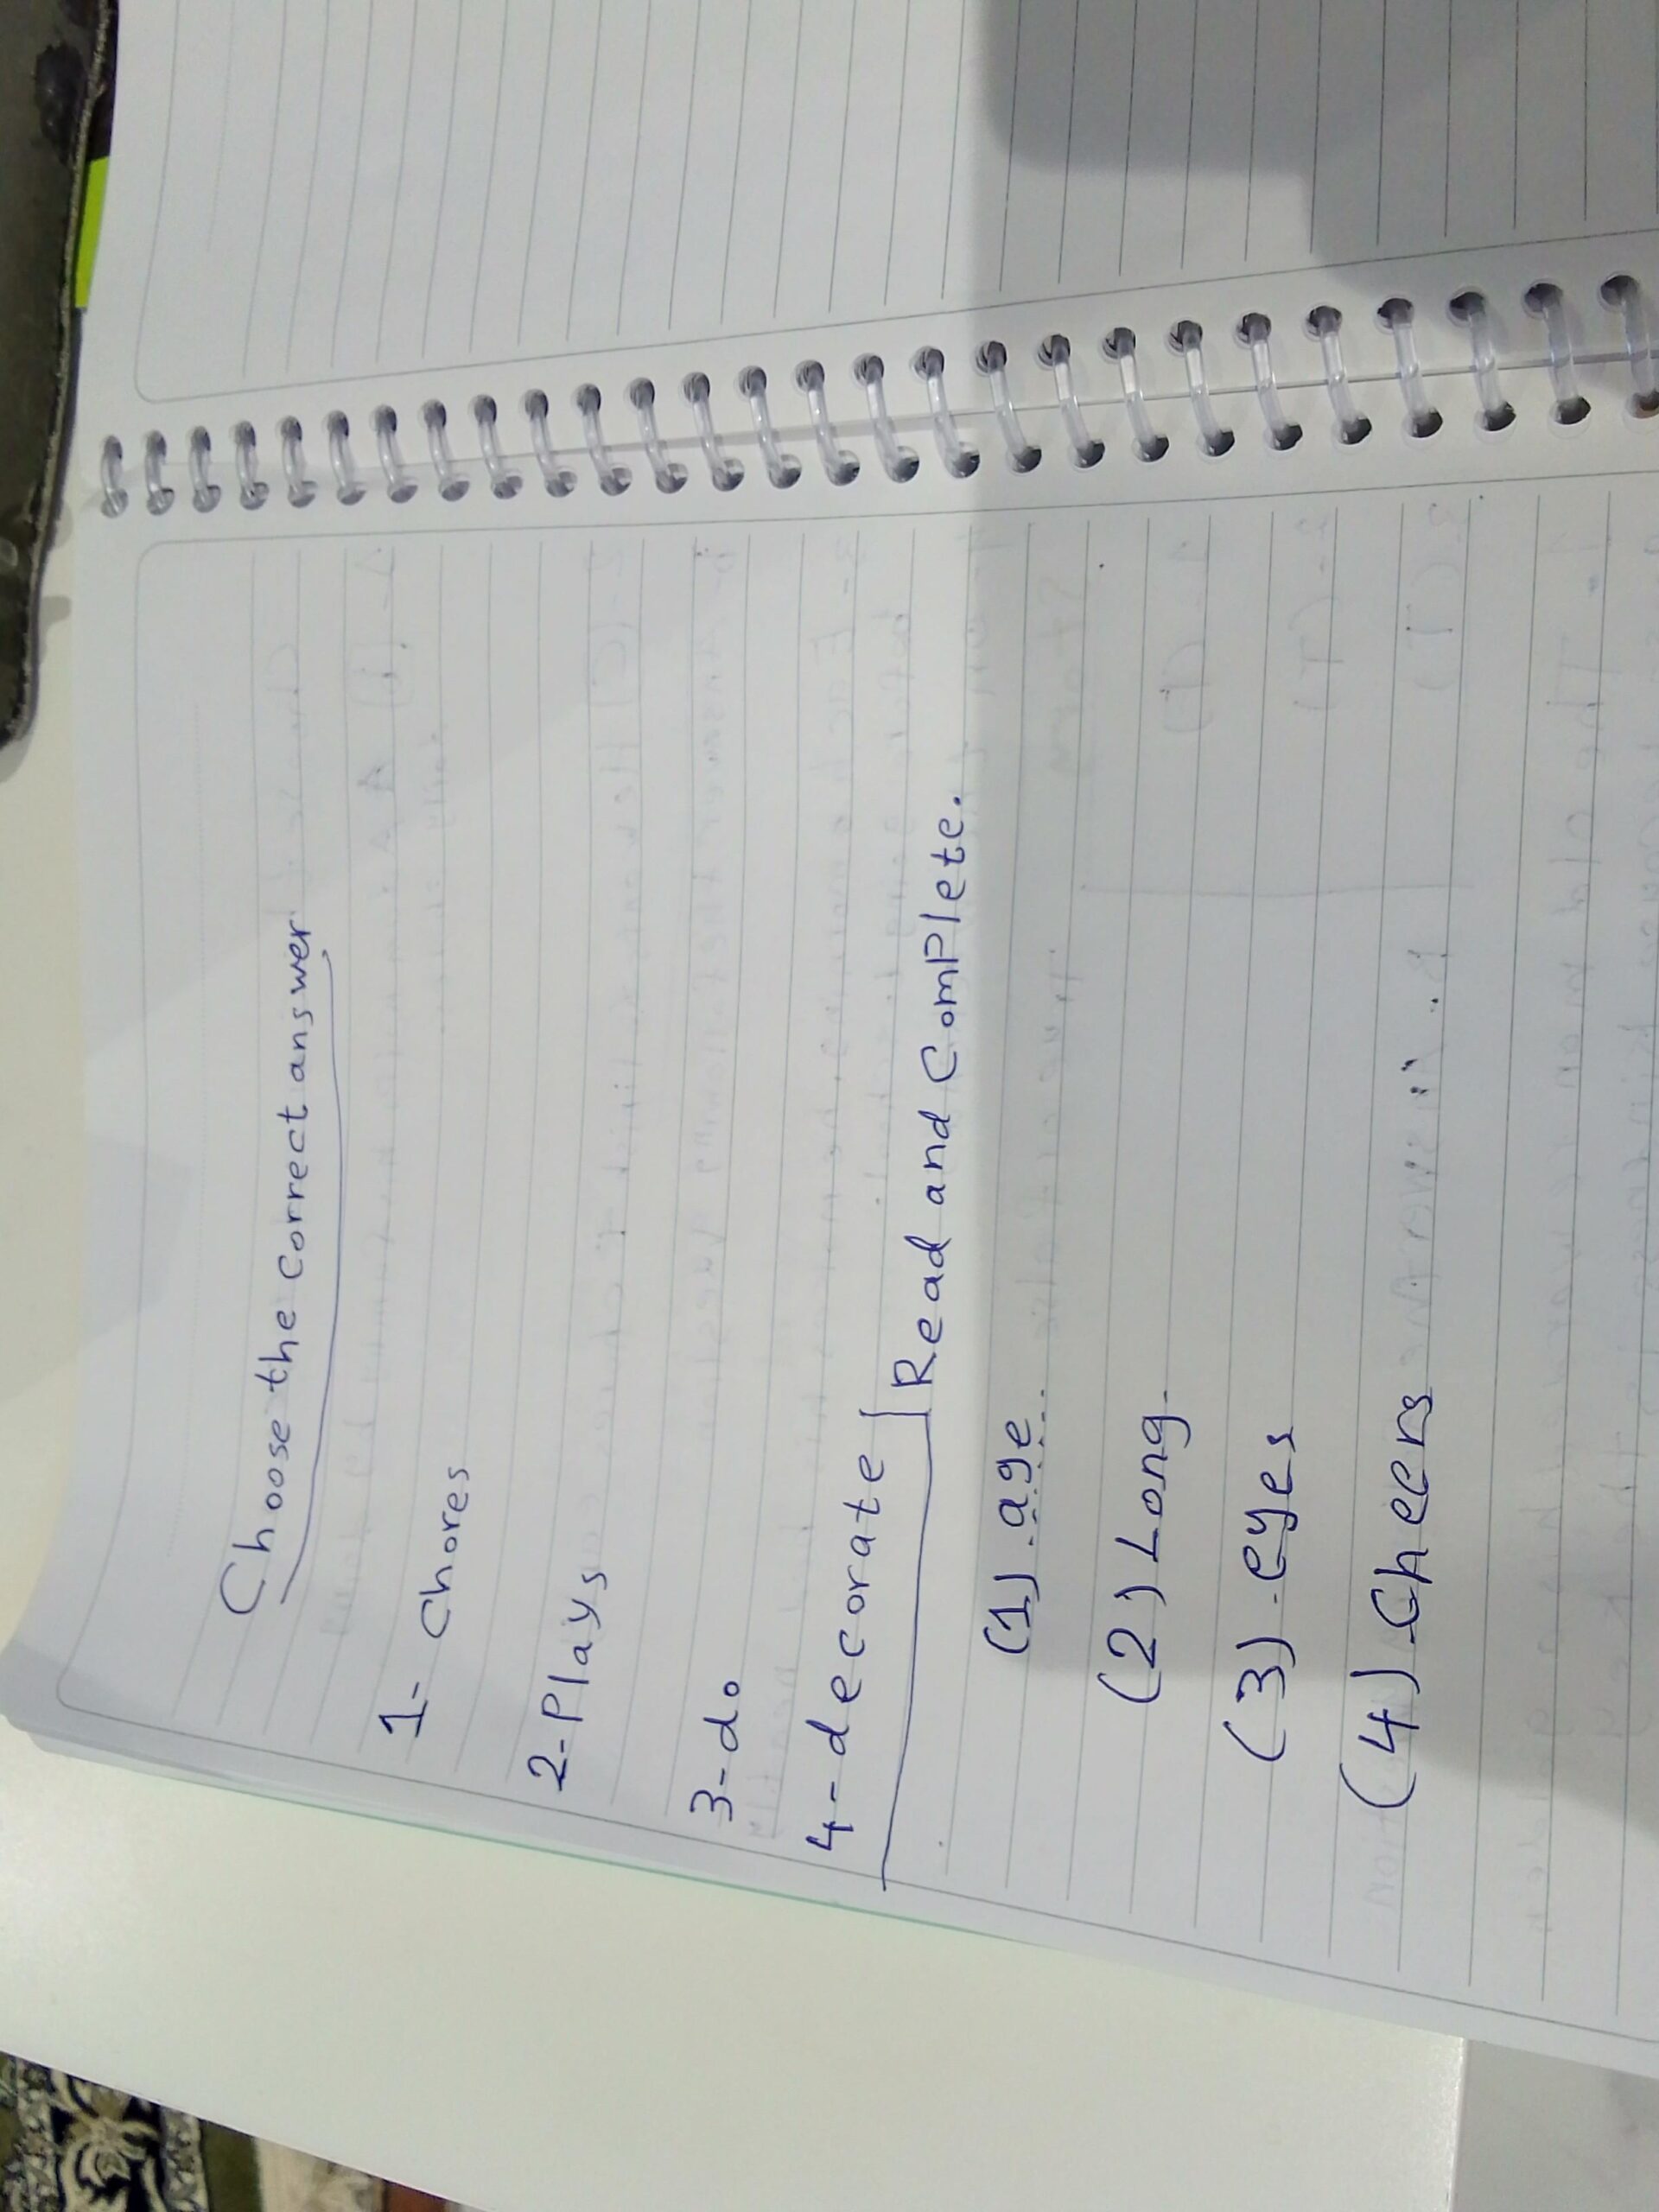 Choose the correct answer
1- Chores
2- Plays
3- do
4- decorate
Read and ComPlete.
(1) age
(2) Long
(3) eyes
(4) Cheers